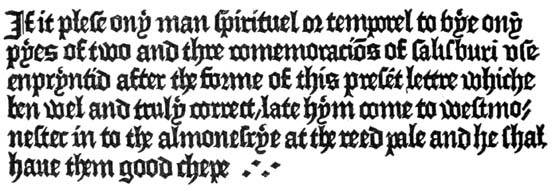 If it plese ony man spirituel or temporel to bye ony
pyes of two and thre comemoraciōs of salisburi vse
enpryntid after the forme of this presēt lettre whiche
ben wel and truly correct, late hym come to westmo⸗
nester in to the almonesrye at the reed pale and he shal
haue them good chepe .·.·